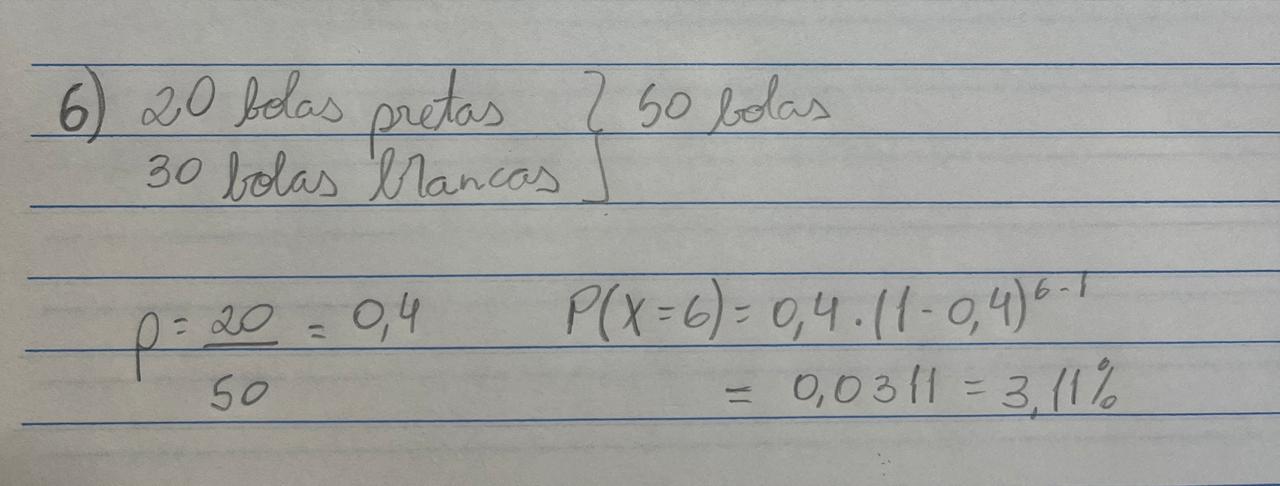 6) 20 bolas pretas } 50 bolas
30 bolas brancas
p = 20/50 = 0,4 P(X=6) = 0,4 . (1 - 0,4)^6-1
= 0,0311 = 3,11%